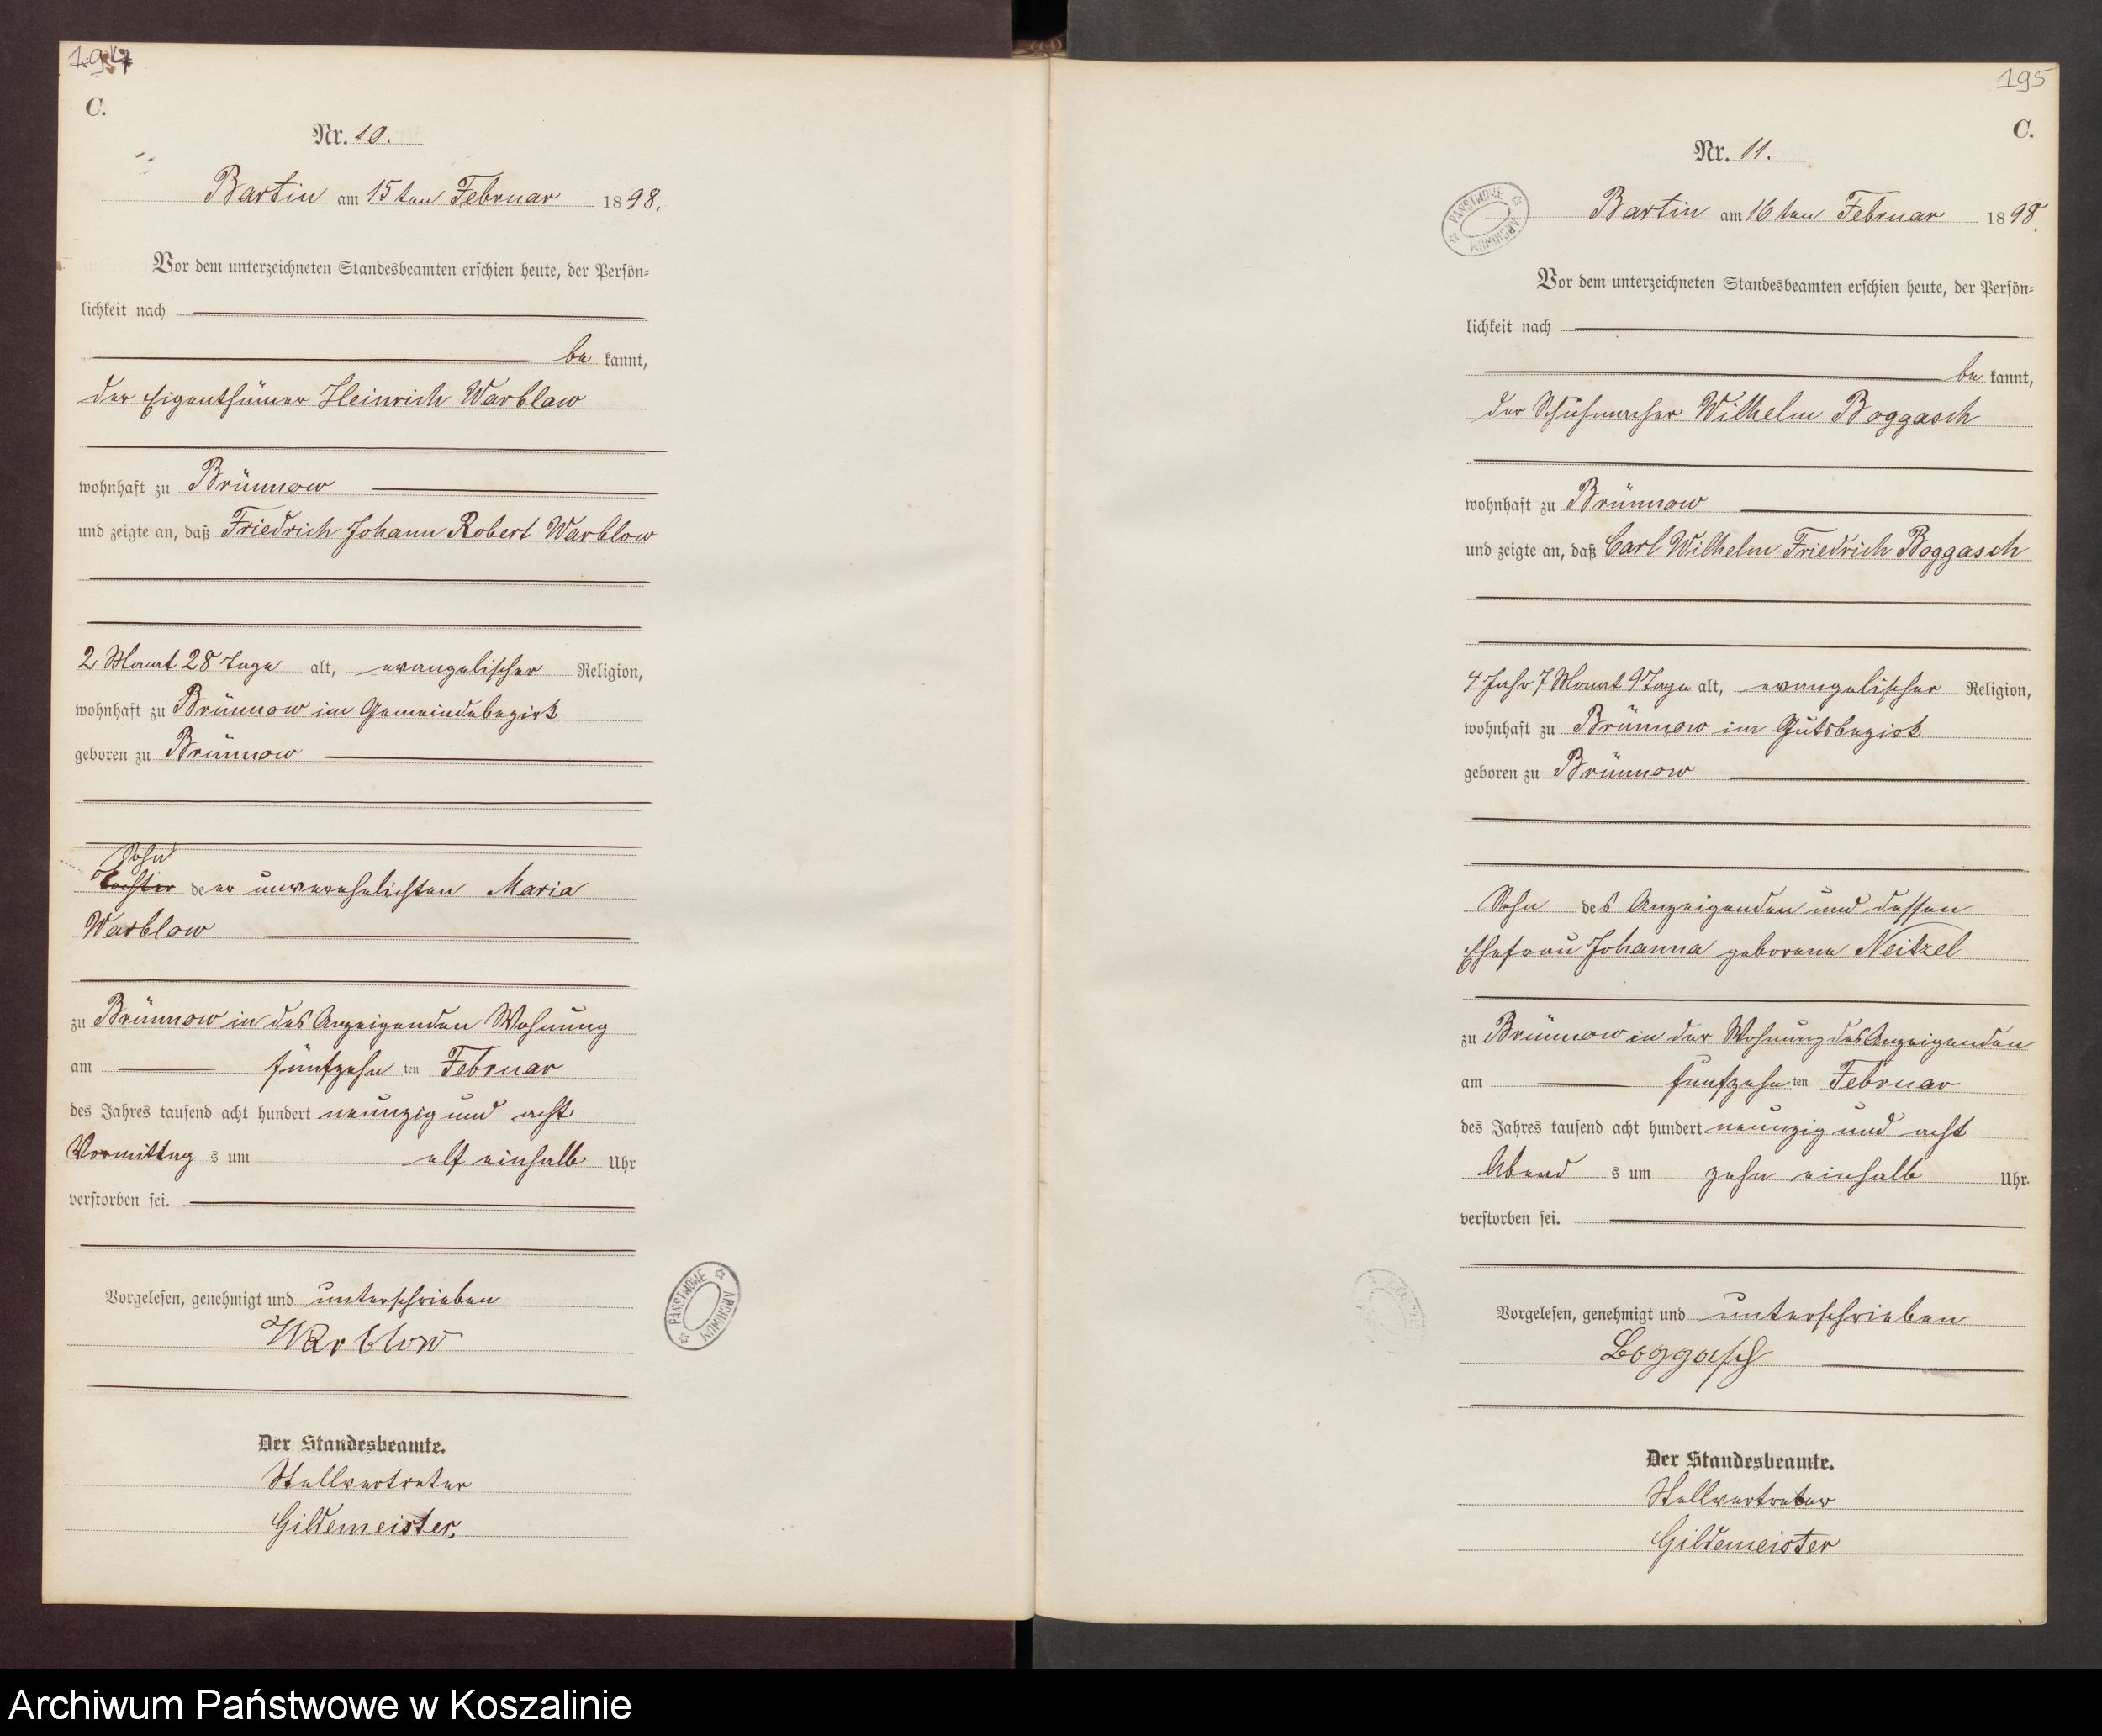 194
C.
Nr. 10.
Bartin am 15ten Februar 1898.
Vor dem unterzeichneten Standesbeamten erschien heute, der Persön-
lichkeit nach
be kannt,
der Eigenthümer Heinrich Warblow
wohnhaft zu Brünnow
und zeigte an, daß Friedrich Johann Robert Warblow
2 Monat 28 Tage alt, evangelischer Religion,
wohnhaft zu Brünnow im Gemeindebezirk
geboren zu Brünnow
Sohn
Tochter deer unverehelichten Maria
Warblow
zu Brünnow in des Anzeigenden Wohnung
am fünfzehn ten Februar
des Jahres tausend acht hundert neunzig und acht
Vormittag s um elf einhalb Uhr
verstorben sei.
Vorgelesen, genehmigt und unterschrieben
Warblow
Der Standesbeamte.
Stellvertreter
Gildemeister.
PAŃSTWOWE ARCHIWUM
195
C.
Nr. 11.
PAŃSTWOWE ARCHIWUM
Bartin am 16ten Februar 1898.
Vor dem unterzeichneten Standesbeamten erschien heute, der Persön-
lichkeit nach
be kannt,
der Schuhmacher Wilhelm Boggasch
wohnhaft zu Brünnow
und zeigte an, daß Carl Wilhelm Friedrich Boggasch
4 Jahr 7 Monat 9 Tage alt, evangelischer Religion,
wohnhaft zu Brünnow im Gutsbezirk
geboren zu Brünnow
Sohn des Anzeigenden und dessen
Ehefrau Johanna geborene Neitzel
zu Brünnow in der Wohnung des Anzeigenden
am fünfzehn ten Februar
des Jahres tausend acht hundert neunzig und acht
Abend s um zehn einhalb Uhr
verstorben sei.
Vorgelesen, genehmigt und unterschrieben
Boggasch
Der Standesbeamte.
Stellvertreter
Gildemeister
Archiwum Państwowe w Koszalinie